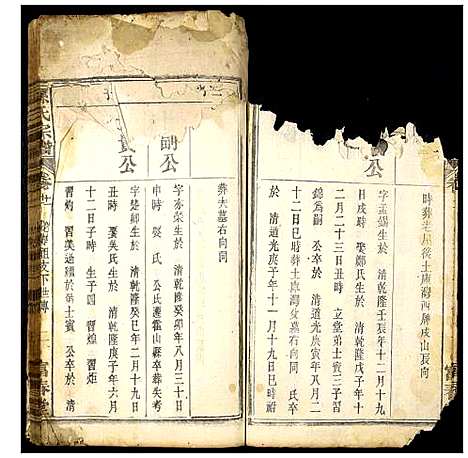 時葬老屋後土庫灣西牌戌山辰向
公
字孟錫生於 清乾隆壬辰年十二月十九
日戌時 娶鄭氏生於 清乾隆戊子年十
二月二十三日丑時 立堂弟士賓三子習
錦為嗣 公卒於 清道光庚寅年八月二
十二日巳時葬土庫灣父墓右向同 氏卒
於 清道光庚子年十一月十九日巳時
葬夫墓右向同
嗣公
字亦榮生於 清乾隆癸卯年八月三十日
申時 娶氏 公氏遷霍山縣卒葬失考
公
字楚 生於 清乾隆癸巳年二月十九日
丑時 娶吳氏生於 清乾隆庚子年六月
十二日子時 生子四 習煌 習炬
習灼 習美過繼於弟士賓 公卒於 清
氏宗譜
富春堂